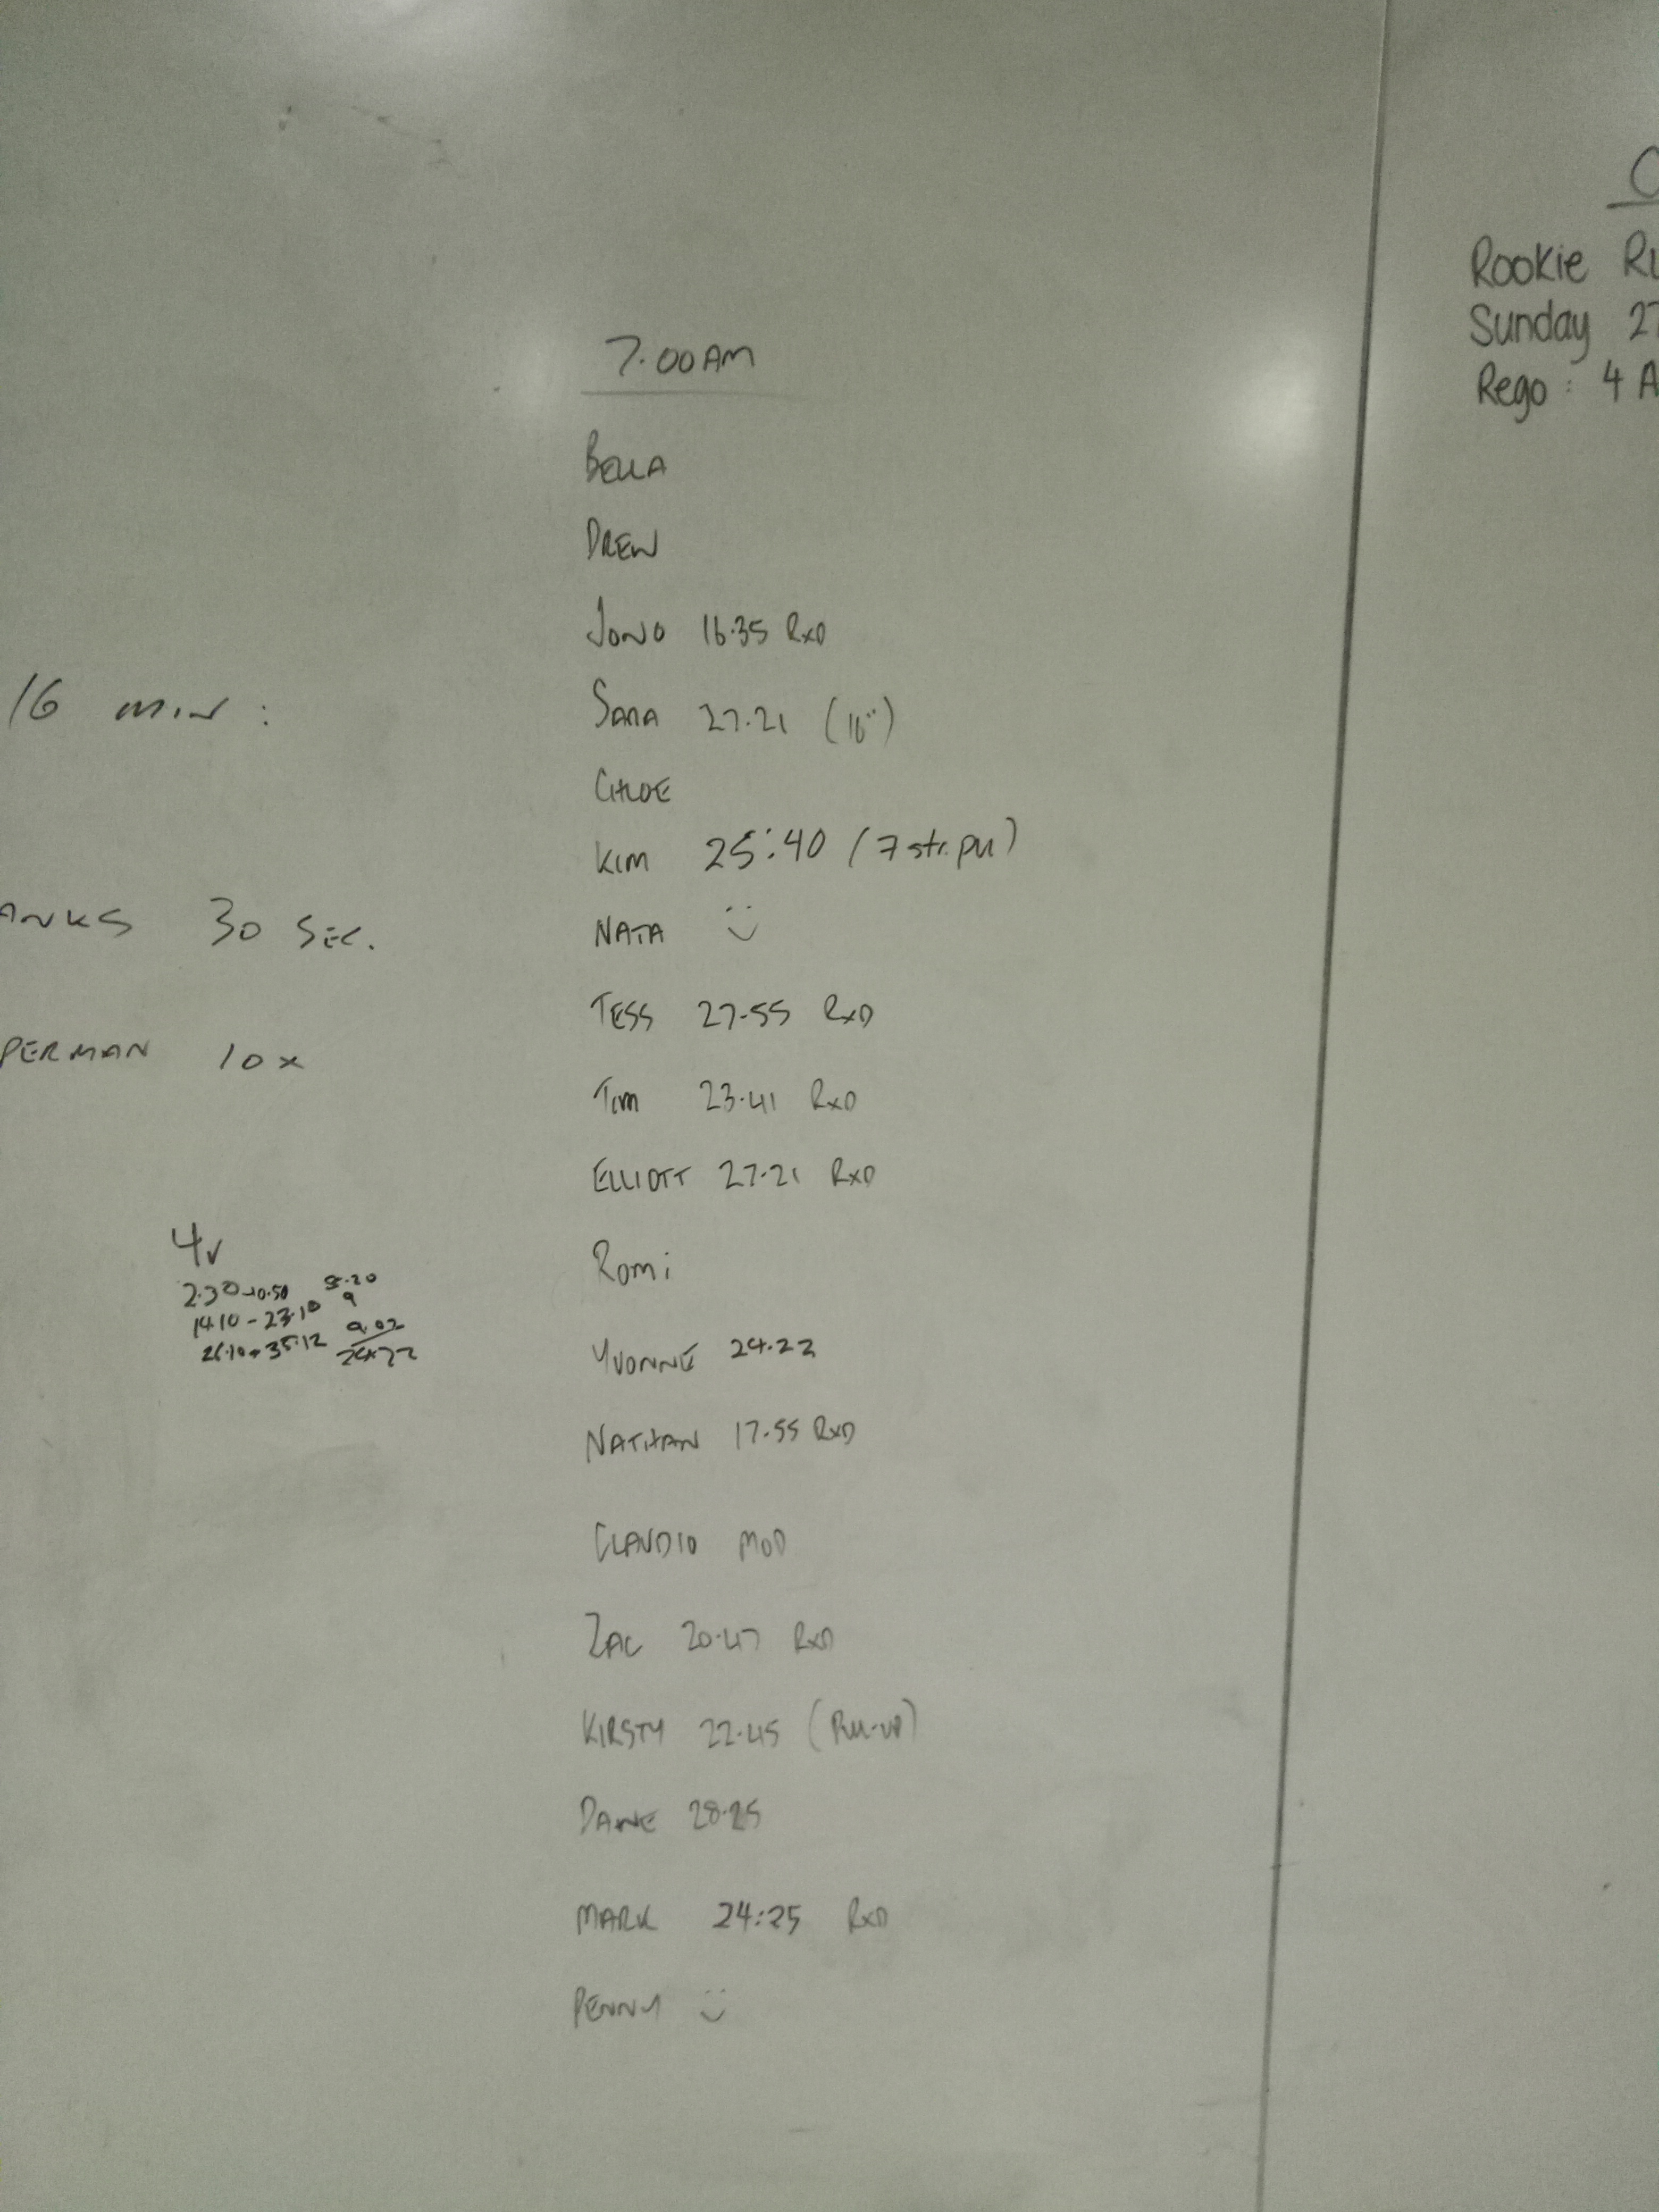 7.00AM
BELLA
DREW
JONO 16.35 RXD
SARA 27.21 (16")
CHLOE
KIM 25:40 (7 str. pu)
NATA :)
TESS 27.55 RXD
TIM 23.41 RXD
ELLIOTT 27.21 RXD
ROMi
YVONNE 24.22
NATHAN 17.55 RXD
CLAUDIO MOD
ZAC 20.47 RXD
KIRSTY 22.45 (PULL-UP)
DANE 28.25
MARK 24:25 RXD
PENNY :)
16 MIN:
ANKS 30 SEC.
PERMAN 10x
4v
2.30-10.50 8.20
14.10-23.10 9
26.10-35.12 9.02
Rookie Ru
Sunday 27
Rego : 4 A